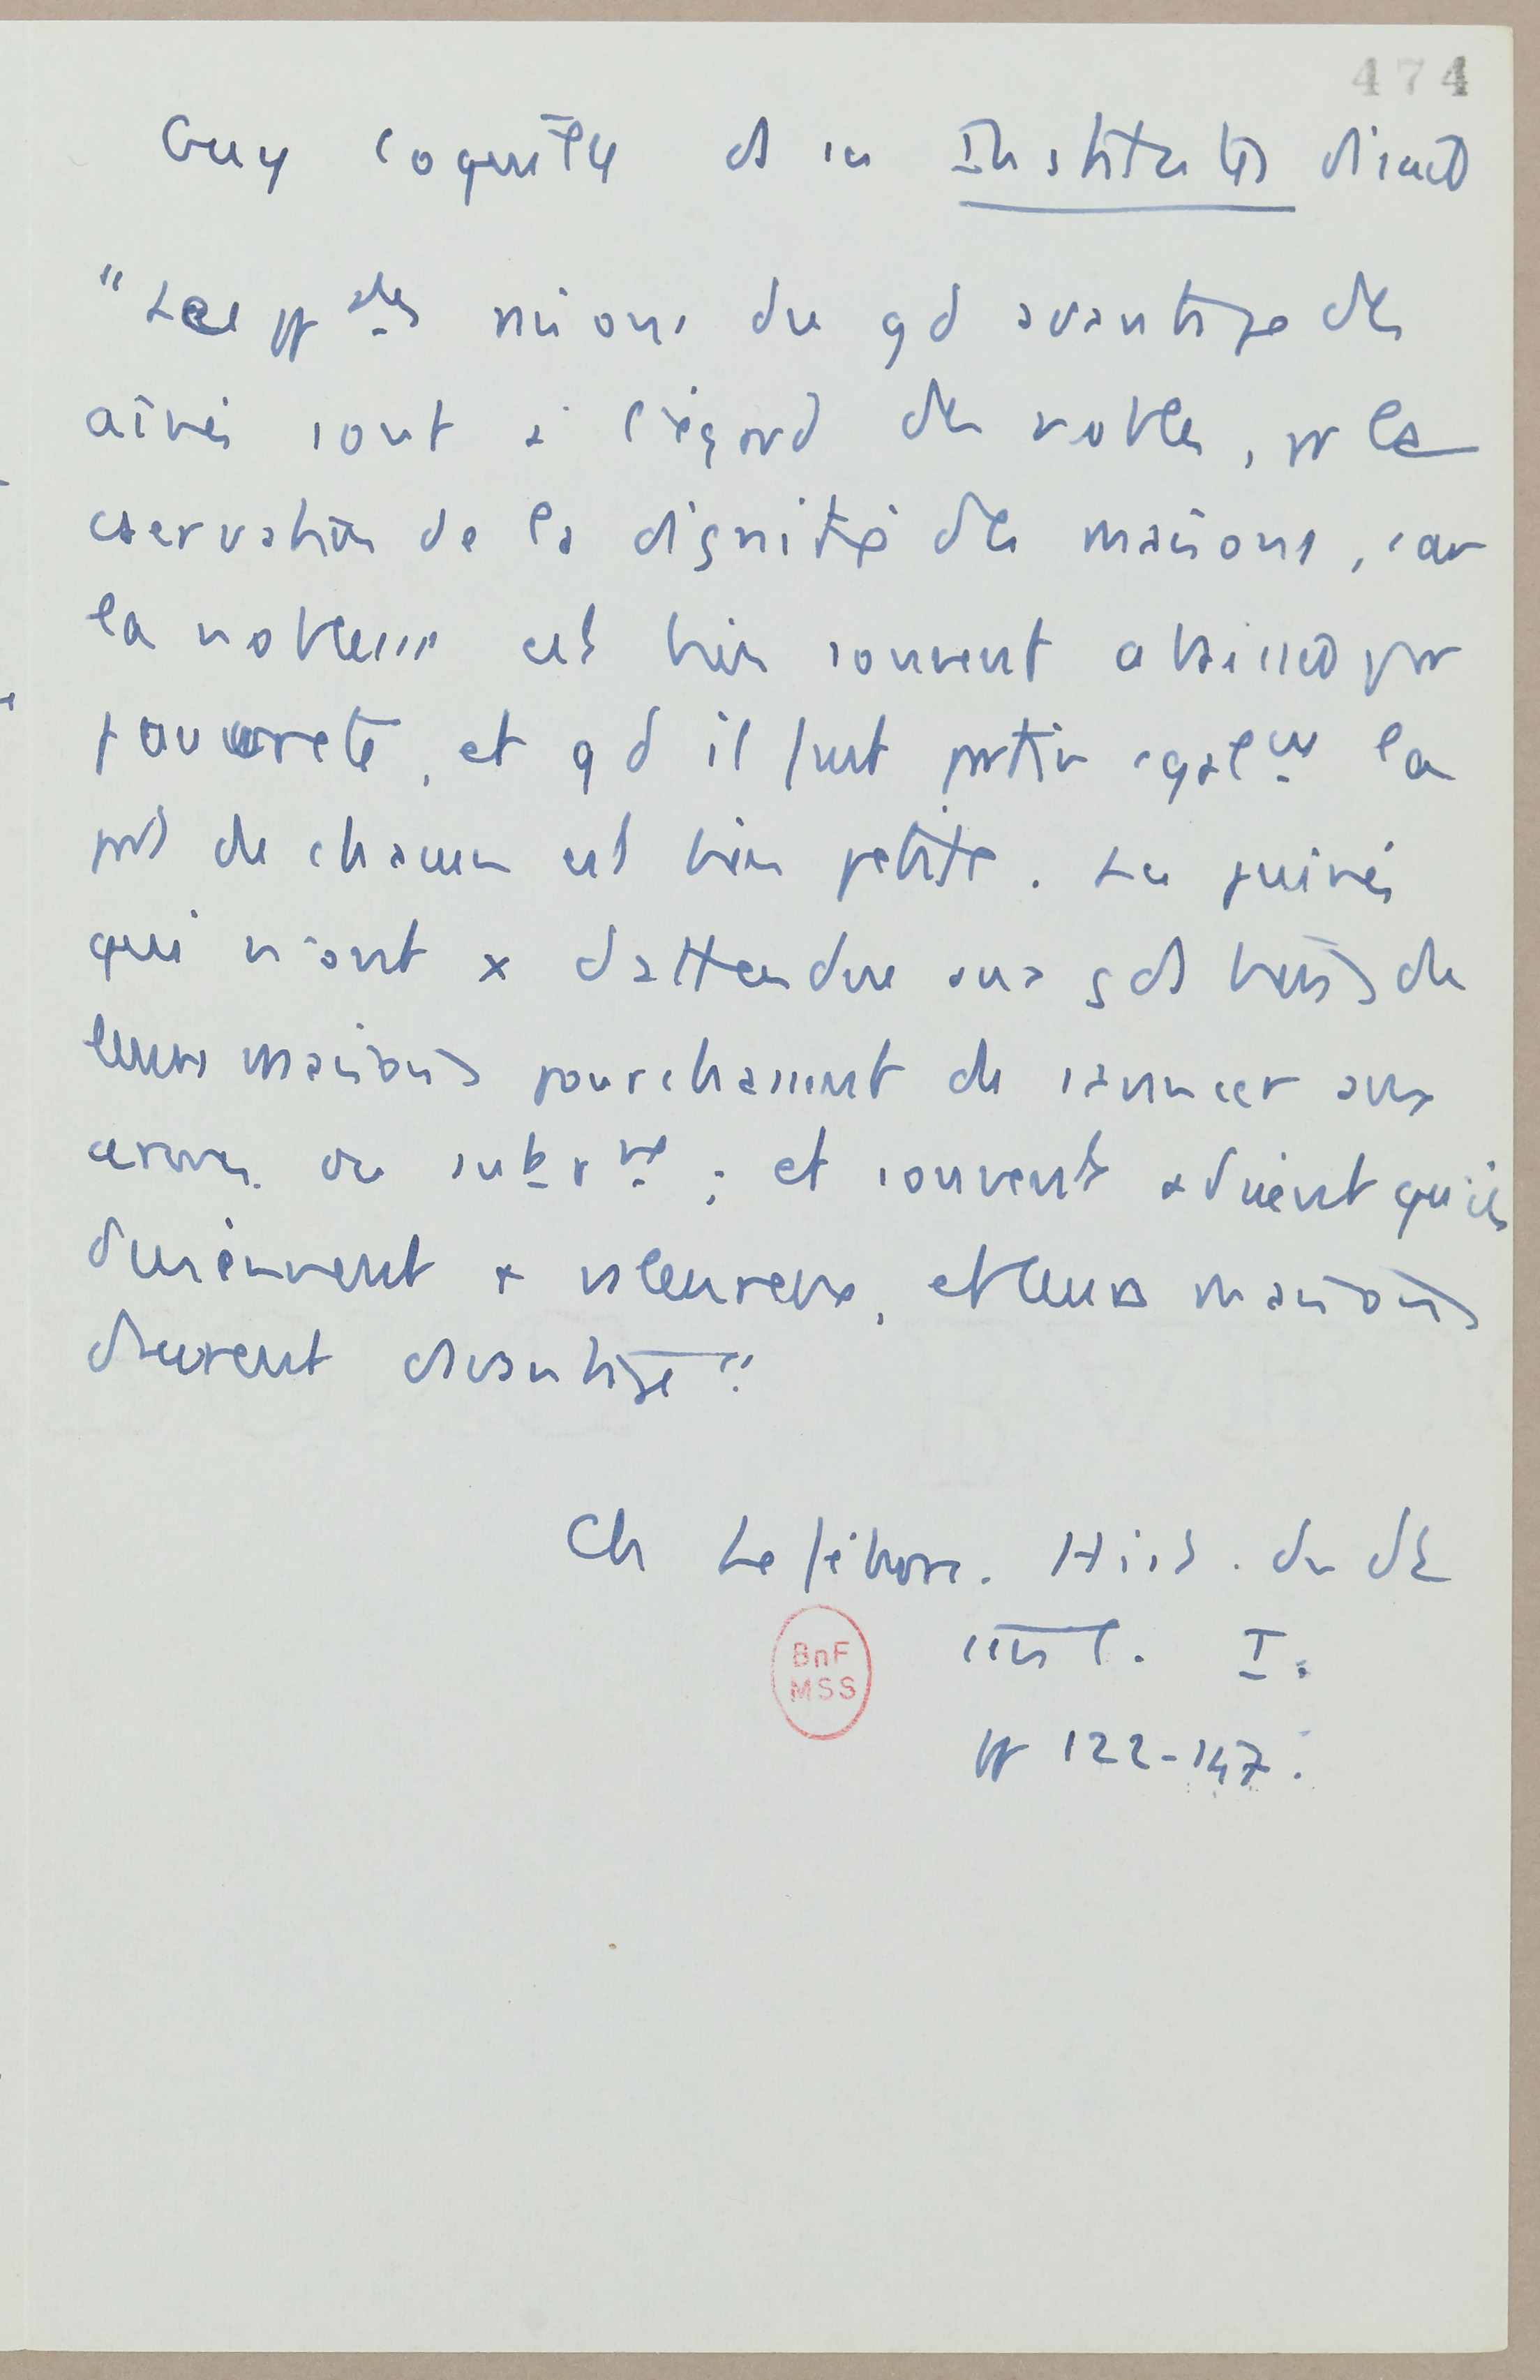 474
Guy Coquille ds ses Institutes disait
"Les ppales raisons du gd avantage des
aînés sont à l'égard des nobles, pr la
cservation de la dignité des maisons, car
la noblesse est bien souvent abaissée par
pauvreté, et qd il faut partir egalemt la
part de chacun est bien petite. Les puinés
qui n'ont x d'attendre aux gds biens de
leurs maisons pourchassent de s'avancer aux
armes ou ; et souvent advient qu'ils
deviennent + valeureux, et leurs maisons
durent davantage".
Ch Lefebvre. Hist. du dt
I.
pp 122-147.
BnF
MSS